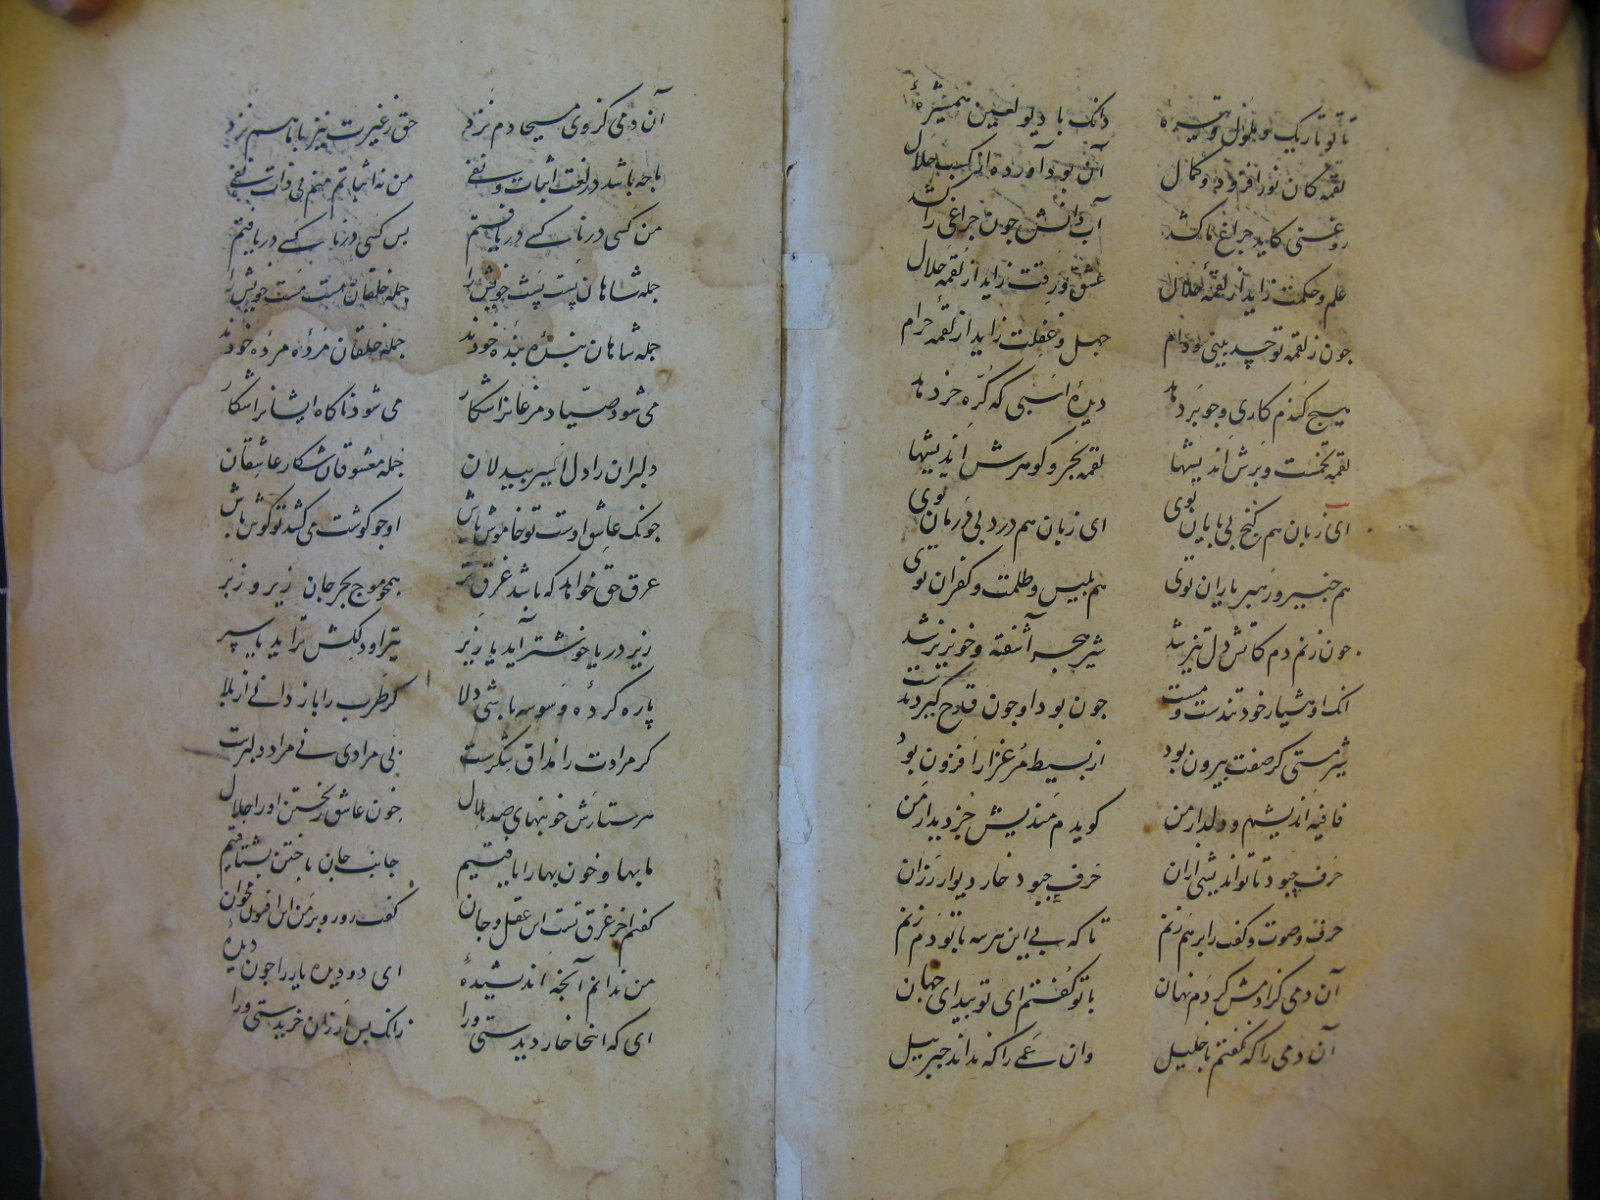 تا تو تاریک و ملول و تیره دانک با دیو لعین همشیرهٔ
لقمه کان نور افزود و کمال آن بود آورده از کسب حلال
روغنی کاید چراغ ما کشد آب دانش چون چراغی را کشد
علم و حکمت زاید از لقمهٔ حلال عشق و رقت زاید از لقمه حلال
جون ز لقمه تو حسد بینی و دام جهل و غفلت زاید از لقمهٔ حرام
هیچ گندم کاری و جو بر دهد دیدهٔ اسبی که کرّه خر دهد
لقمه تخمست و برش اندیشها لقمه بحر و کوهرش اندیشها
ای زبان هم کنج بی پایان توی ای زبان هم درد بی درمان توی
هم خبیر و رهبر یاران توی هم بلیس و ظلمت و کفران توی
جون زنم دم کاتش دل تیز شد شیر هجر آشفته و خونریز شد
انک او هشیار خود تندست و مست جون بود او جون قدح کیرد بدست
شیر مستی کز صفت بیرون بود از بسیط مرغزار افزون بود
قافیه اندیشم و دلدار من کویدم مندیش جز دیدار من
حرف چبود تا تو اندیشی ازان حرف چبود خار دیوار رزان
حرف و صوت و کفت را برهم زنم تا که بی این هر سه با تو دم زنم
آن دمی کز آدمش کردم نهان با تو کفتم ای تو پیدای جهان
آن دمی را که نکفتم با خلیل وان غمی را که نداند جبرییل
آن دمی کزوی مسیحا دم نزد حق ز غیرت نیز با ما هم نزد
ما جه باشد در لغت اثبات و نفی من نه اثباتم منم بی ذات و نفی
من کسی در ناکسی دریافتم بس کسی در ناکسی دریافتم
جمله شاهان پست پست خویش را جمله خلقان مست مست خویش را
جمله شاهان بندهٔ بنده خودند جمله خلقان مردهٔ مرده خودند
می شود صیاد مرغانرا شکار می شود ناکاه ایشانرا شکار
دلبران را دل اسیر بیدلان جمله معشوقان شکار عاشقان
جونک عاشق اوست تو خاموش باش او جو کوشت می کشد تو کوش باش
غرق حق خواهد که باشد غرق تر همجو موج بحر جان زیر و زبر
زیر دریا خوشتر آید یا زبر تیر او دلکش تر آید یا سپر
پاره کردهٔ وسوسه باشی دلا کر طرب را باز دانی از بلا
کر مرادت را مذاق شکرست بی مرادی نی مراد دلبرست
هر ستارش خونبهای صد هلال خون عاشق ریختن او را حلال
ما بها و خون بها را یافتیم جانب جان باختن بشتافتیم
کفتم اخر غرق تست این عقل و جان کفت رو رو بر من این افسون مخوان
من ندانم آنجه اندیشیدهٔ ای دو دیده یار را جون دیدهٔ
ای که انجا خار دیدستی ورا زانک بس ارزان خریدستی ورا